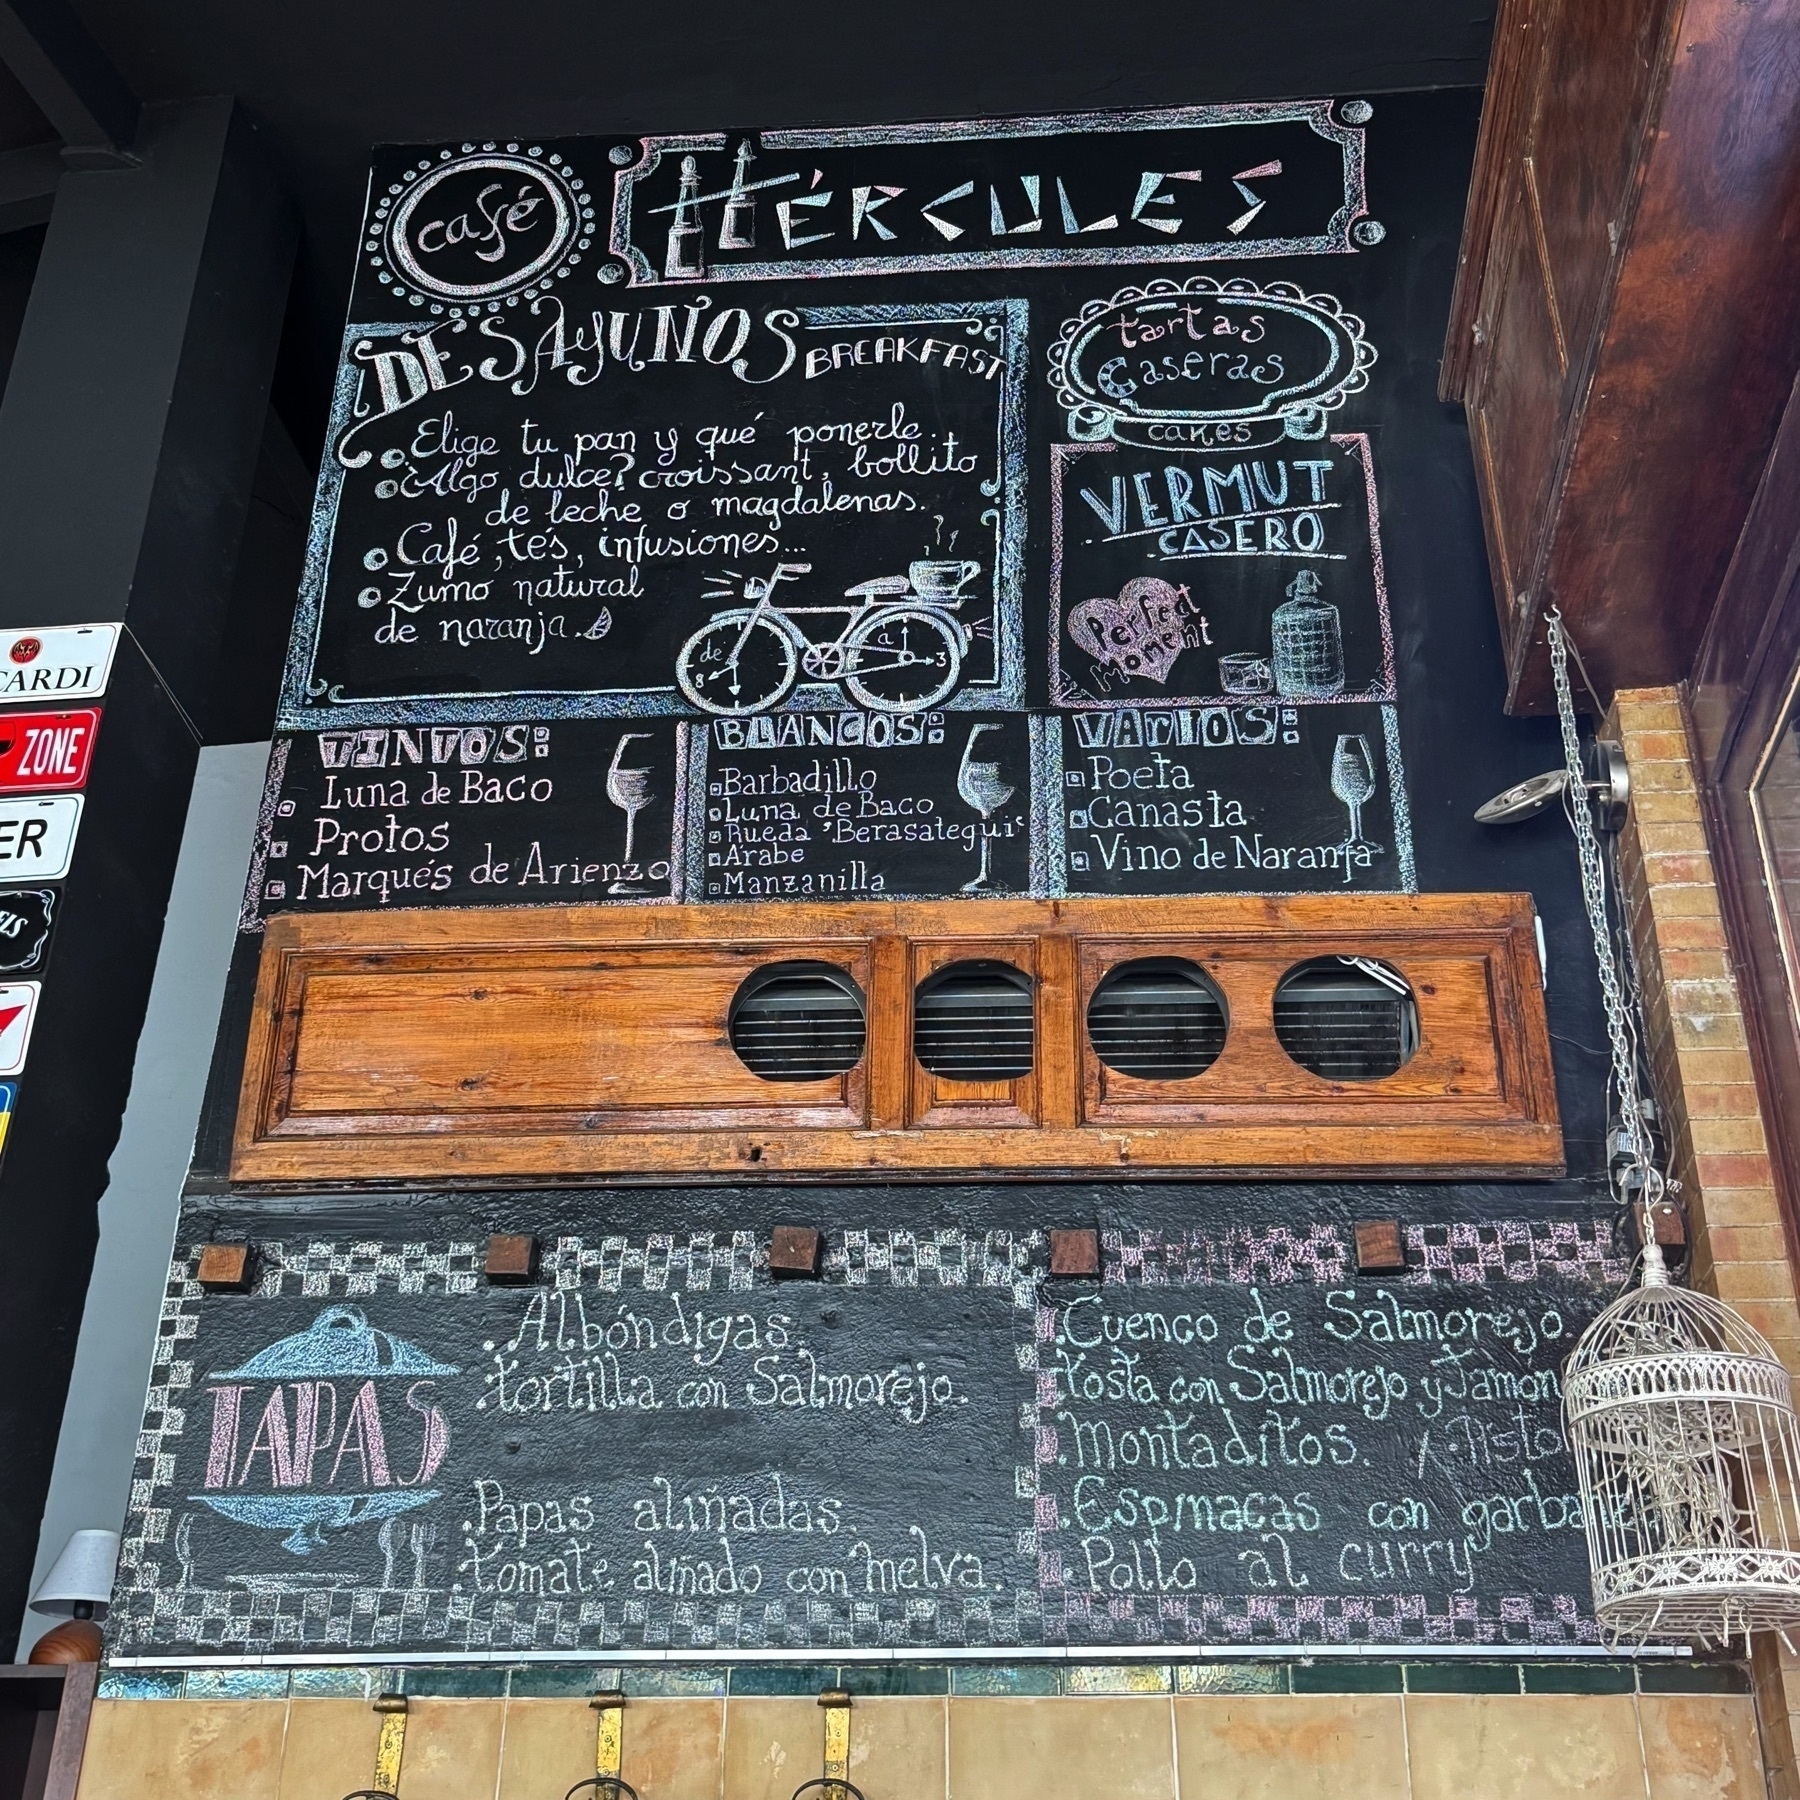 café
HÉRCULES
DESAYUNOS
BREAKFAST
Elige tu pan y qué ponerle.
¿Algo dulce? croissant, bollito
de leche o magdalenas.
Café, tés, infusiones...
Zumo natural
de naranja.
de 8
a 3
tartas
Caseras
cakes
VERMUT
CASERO
Perfect
moment
TINTOS:
Luna de Baco
Protos
Marqués de Arienzo
BLANCOS:
Barbadillo
Luna de Baco
Rueda "Berasategui"
Árabe
Manzanilla
VARIOS:
Poeta
Canasta
Vino de Naranja
CARDI
ZONE
ER
TAPAS
Albóndigas.
tortilla con Salmorejo.
Papas aliñadas.
tomate aliñado con melva.
Cuenco de Salmorejo.
tosta con Salmorejo y Jamón
Montaditos.
Espinacas con
Pollo al curry